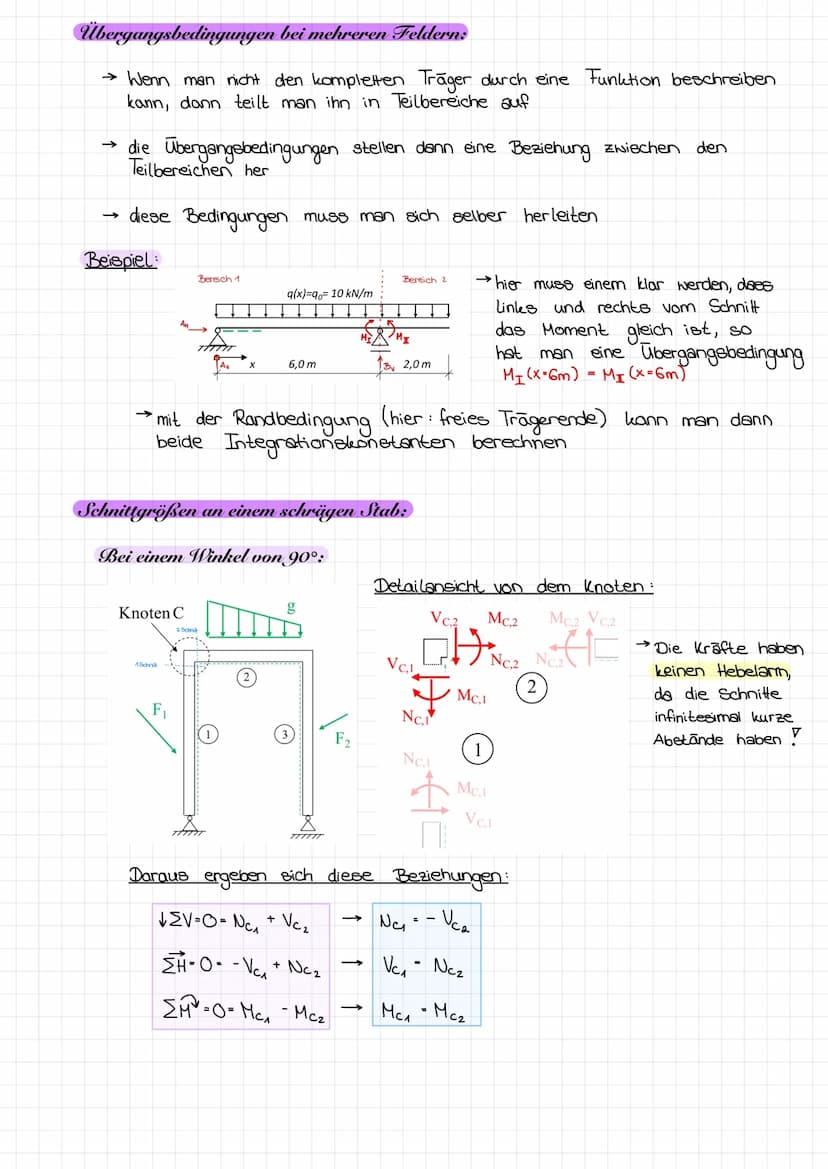 Übergangsbedingungen bei mehreren Feldern:
→ Wenn man nicht den kompletten Träger durch eine Funktion beschreiben
kann, dann teilt man ihn in Teilbereiche auf
→ die Übergangsbedingungen stellen dann eine Beziehung zwischen den
Teilbereichen her
→ diese Bedingungen muss man sich selber herleiten
Beispiel:
Bereich 1
Bereich 2
q(x)=q₀= 10 kN/m
A_H
M_I
M_II
A_V
x
6,0 m
B_V
2,0 m
→ hier muss einem klar werden, dass
links und rechts vom Schnitt
das Moment gleich ist, so
hat man eine Übergangsbedingung
M_I (x=6m) = M_II (x=6m)
→ mit der Randbedingung (hier: freies Trägerende) kann man dann
beide Integrationskonstanten berechnen
Schnittgrößen an einem schrägen Stab:
Bei einem Winkel von 90°:
Detailansicht von dem Knoten:
Knoten C
g
2.Schnitt
1.Schnitt
F₁
F₂
1
2
3
V_C,2
M_C,2
N_C,2
M_C,2 V_C,2
N_C,2
V_C,1
M_C,1
N_C,1
2
1
N_C,1
M_C,1
V_C,1
→ Die Kräfte haben
keinen Hebelarm,
da die Schnitte
infinitesimal kurze
Abstände haben !
Daraus ergeben sich diese Beziehungen:
↓ΣV=0= N_C1 + V_C2 → N_C1 = - V_C2
ΣH=0= -V_C1 + N_C2 → V_C1 = N_C2
ΣM=0= M_C1 - M_C2 → M_C1 = M_C2